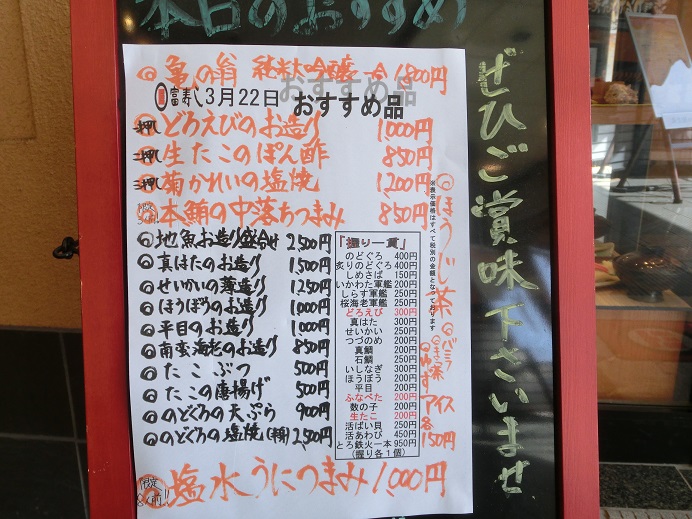 本日のおすすめ
◎亀の翁 純米大吟醸 一合 1800円
富寿し3月22日 おすすめ品
一押 どろえびのお造り 1,000円
二押 生たこのぽん酢 850円
三押 菊かれいの塩焼 1,200円
本鮪の中落ちつまみ 850円
◎地魚お造り盛合せ 2,500円
◎真はたのお造り 1,500円
◎せいかいの薄造り 1,250円
◎ほうぼうのお造り 1,000円
◎平目のお造り 1,000円
◎南蛮海老のお造り 850円
◎たこぶつ 500円
◎たこの唐揚げ 500円
◎のどぐろの天ぷら 900円
◎のどぐろの塩焼(特) 2,500円
限定
塩水うにつまみ 1,000円
「握り一貫」
のどぐろ 400円
炙りのどぐろ 400円
しめさば 150円
いかわた軍艦 200円
しらす軍艦 250円
桜海老軍艦 250円
どろえび 300円
真はた 300円
せいかい 250円
つづのめ 200円
真鯛 200円
石鯛 250円
いしなぎ 300円
ほうぼう 200円
平目 200円
ふなべた 200円
数の子 200円
生たこ 200円
活ばい貝 250円
活あわび 450円
とろ鉄火一本 950円
(握り各1個)
※表示価格はすべて税別の金額となっております
◎ほうじ茶
◎バニラ
◎まっ茶
◎ゆず
アイス
各150円
ぜひご賞味下さいませ